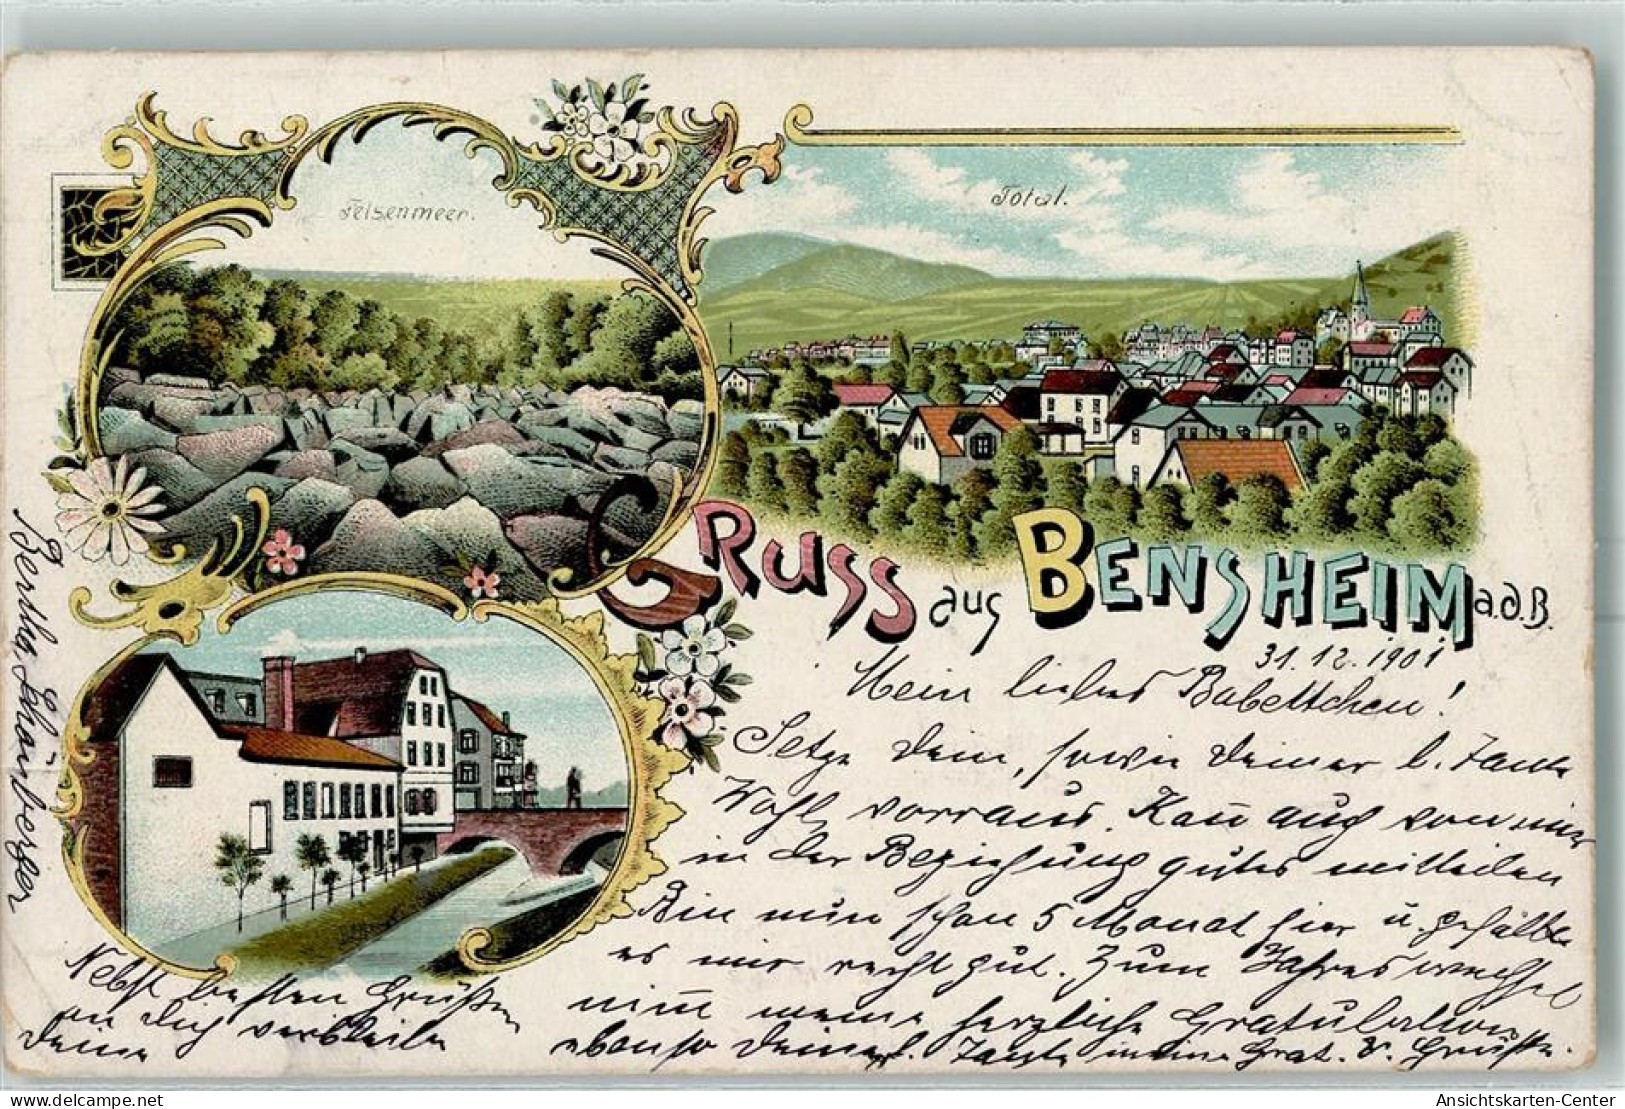 Felsenmeer.
Total.
GRUSS aus BENSHEIM a.d.B.
31.12.1901
Mein liebes Babettchen!
Setze Dein, sowie Deiner l. Tante
Wohl voraus. Kann auch von mir
in der Beziehung gutes mitteilen
Bin nun schon 5 Monat hier u. gefällt
es mir recht gut. Zum Jahreswechsel
nimm meine herzliche Gratulation
ebenso Deiner l. Tante meine Grat. u. Grüße.
Nebst besten Grüßen
an Dich verbleibe
Deine
Bertha Schönberger
www.delcampe.net
tpk111
Ansichtskarten-Center